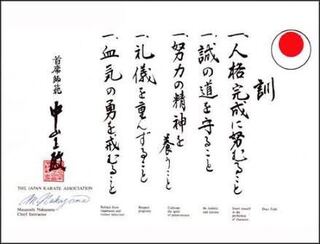 訓
一、人格完成に努むること
一、誠の道を守ること
一、努力の精神を養うこと
一、礼儀を重んずること
一、血気の勇を戒むること
首席師範
中山正敏
THE JAPAN KARATE ASSOCIATION
M. Nakayama
Masatoshi Nakayama
Chief Instructor
Respect
propriety
Cultivate
the spirit
of perseverance
Be faithful
and sincere
Exert oneself
in the
perfection
of character
Dojo Code